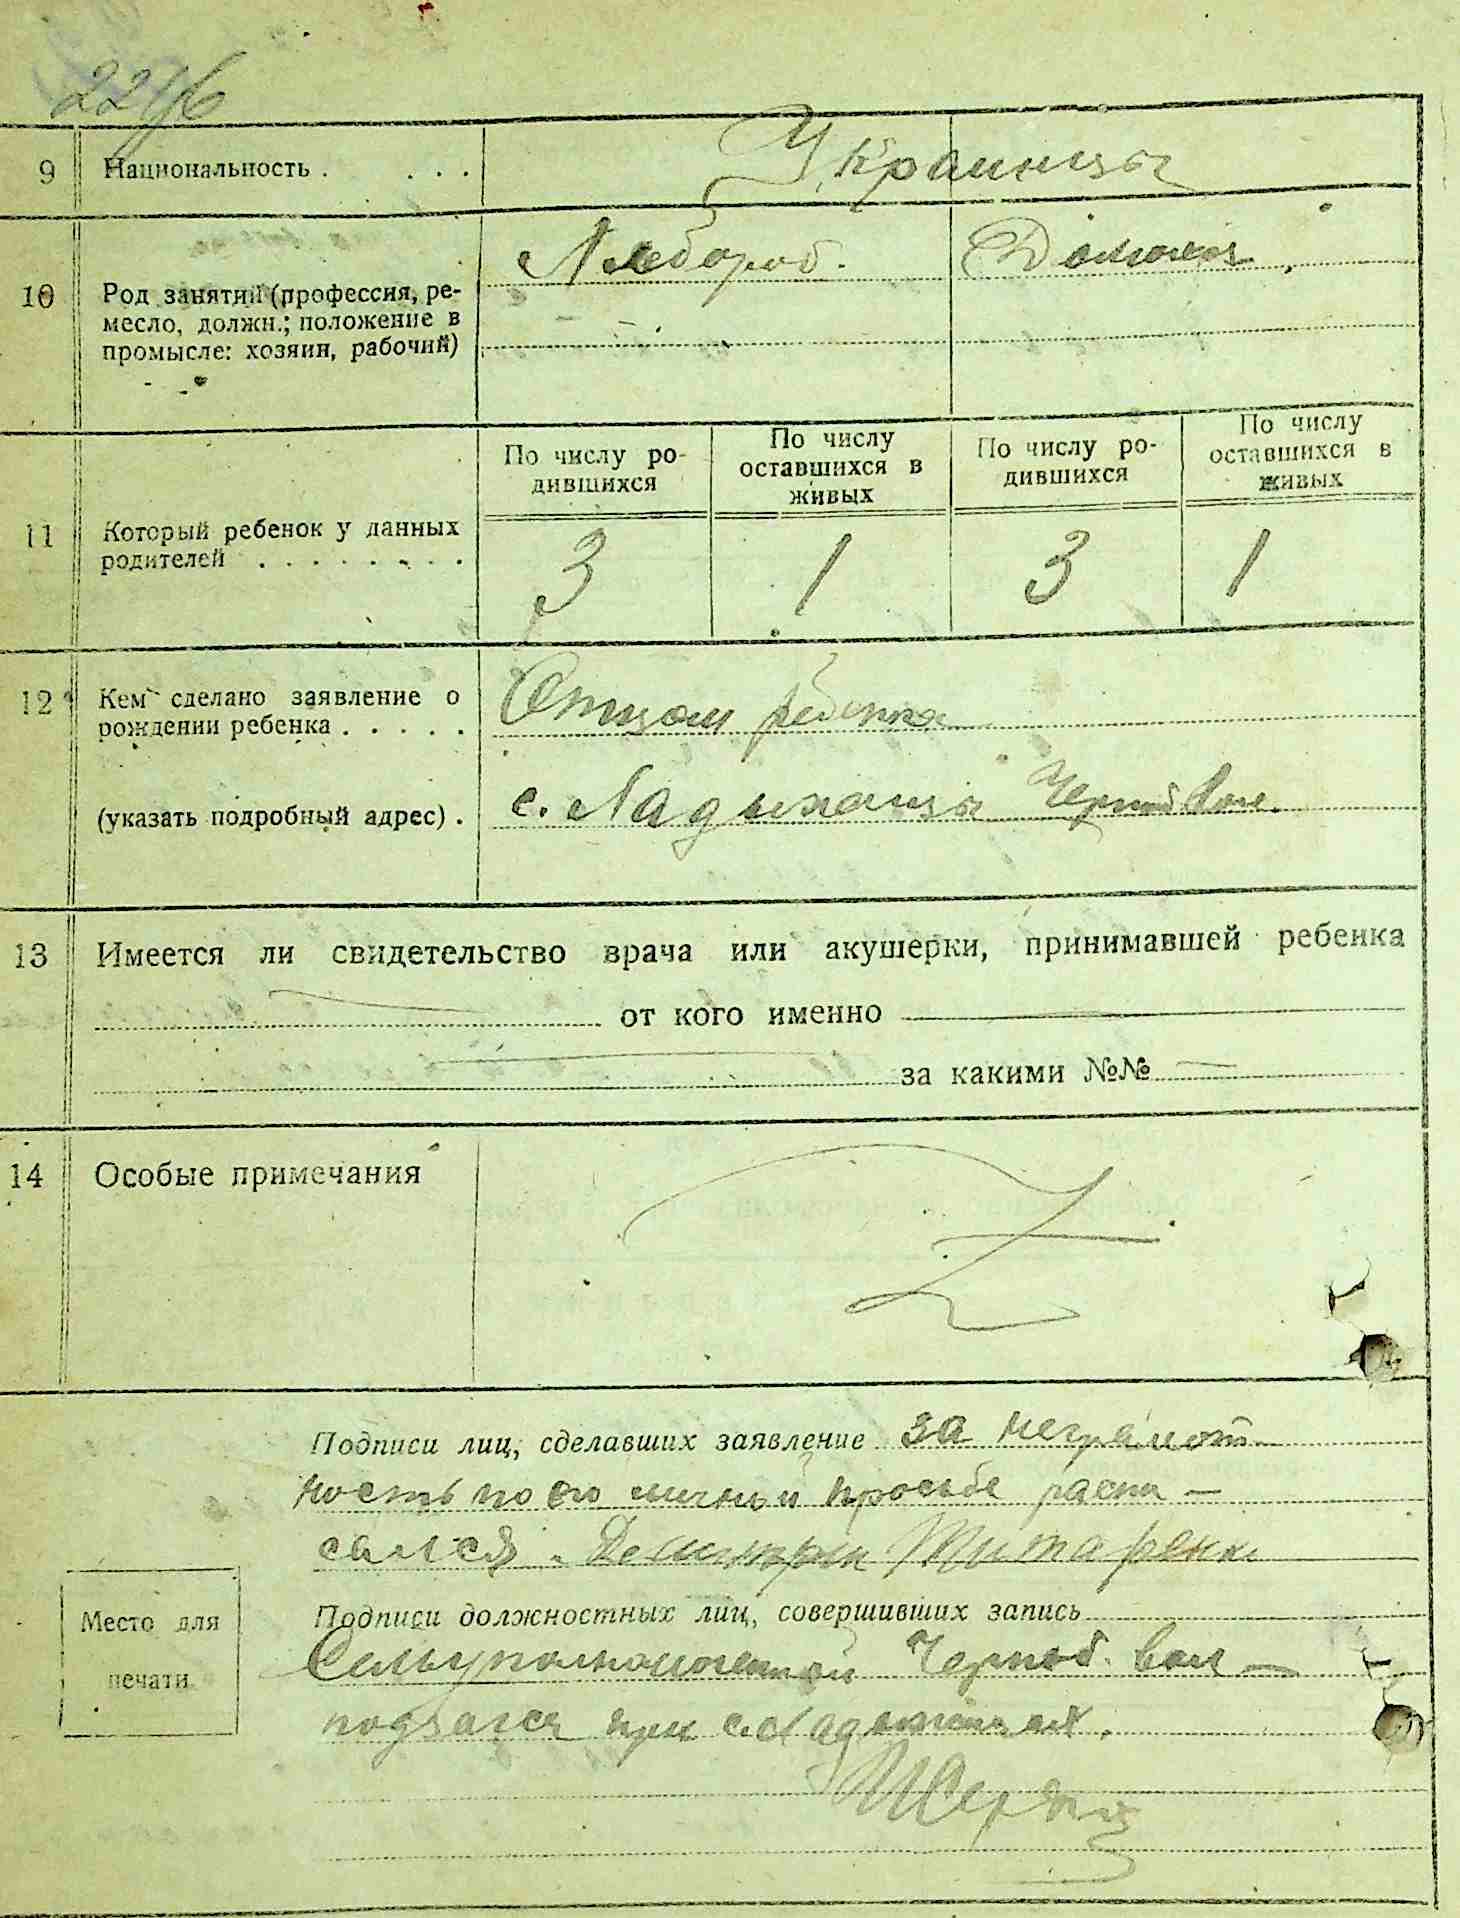 9 Национальность . . . . Украинцы
10 Род занятий (профессия, ре-
месло, должн.; положение в
промысле: хозяин, рабочий)
Хлебороб. Домохоз.
11 Который ребенок у данных
родителей . . . . . . . .
По числу ро-
дившихся
По числу
оставшихся в
живых
По числу ро-
дившихся
По числу
оставшихся в
живых
3 1 3 1
12 Кем сделано заявление о
рождении ребенка . . . . .
Отцом ребенка
(указать подробный адрес) . с. Ладыжацы вол.
13 Имеется ли свидетельство врача или акушерки, принимавшей ребенка
от кого именно
за какими №№
14 Особые примечания
Подписи лиц, сделавших заявление за неграмот-
ность по его личной просьбе распи-
сался Титаренко
Место для
печати
Подписи должностных лиц, совершивших запись
Черноб. вол
подзагса при с. Ладыжицах.